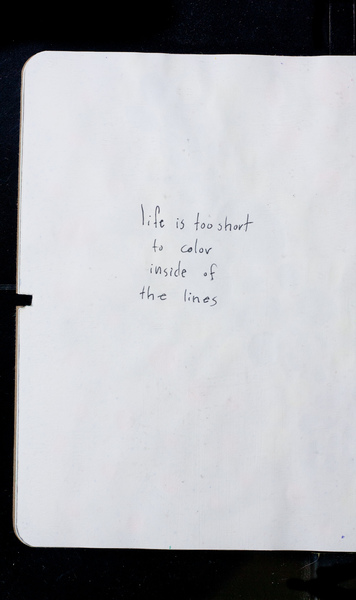 life is too short
to color
inside of
the lines